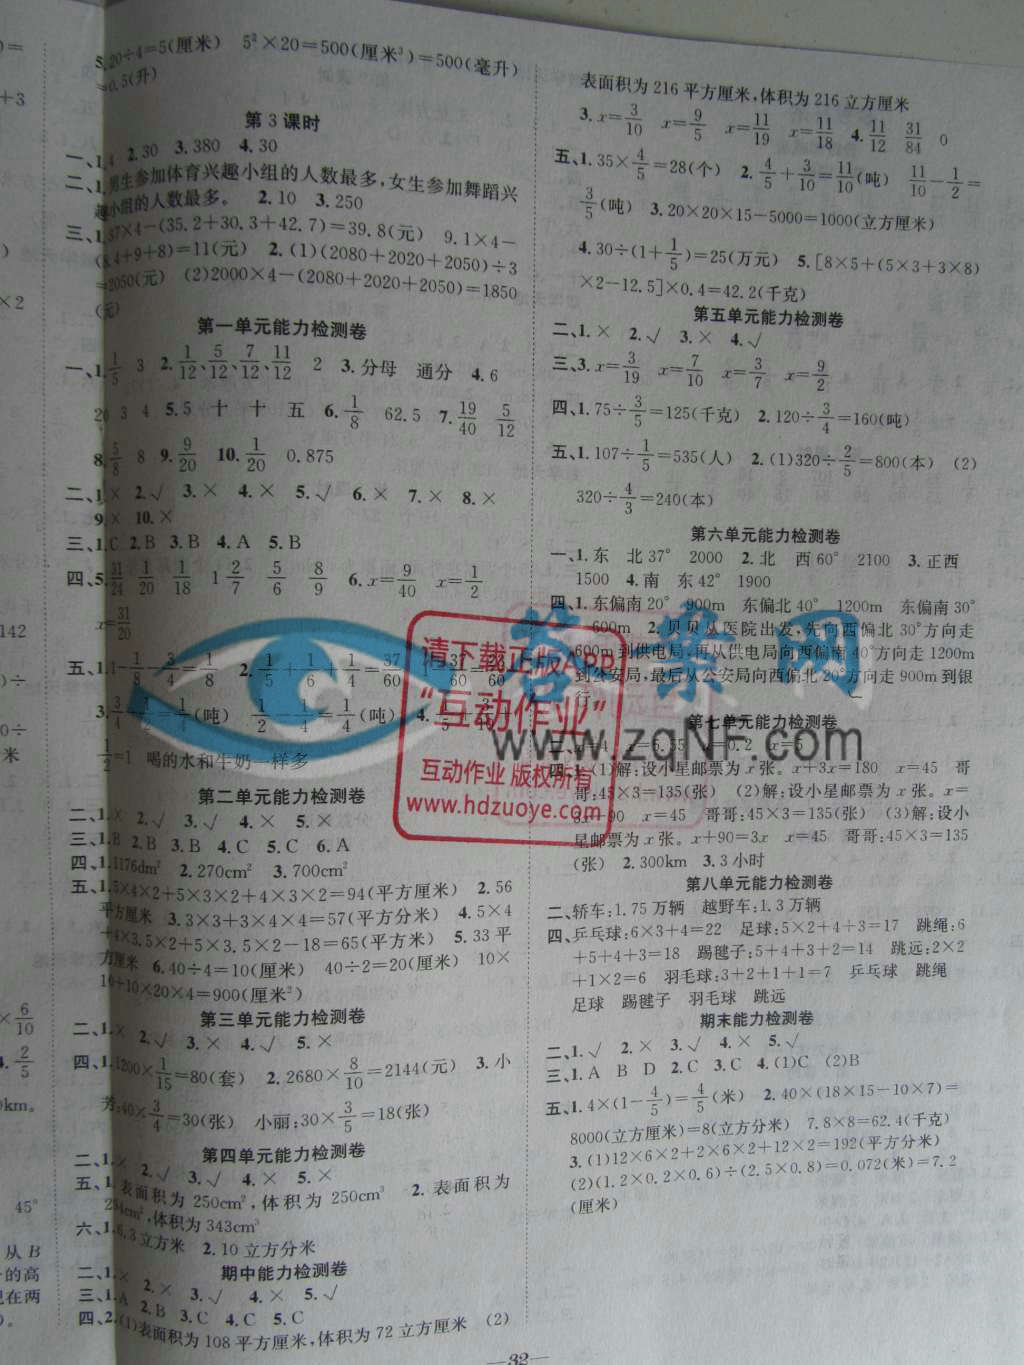 5.20÷4=5(厘米) 5²×20=500(厘米³)=500(毫升)
=0.5(升)
第3课时
一、1.4 2.30 3.380 4.30
二、1.男生参加体育兴趣小组的人数最多,女生参加舞蹈兴
趣小组的人数最多。 2.10 3.250
三、1.37×4-(35.2+30.3+42.7)=39.8(元) 9.1×4-
(8.4+9+8)=11(元) 2.(1)(2080+2020+2050)÷3
=2050(元) (2)2000×4-(2080+2020+2050)=1850
(元)
第一单元能力检测卷
一、1.1/5 3 2.1/12、5/12、7/12、11/12 2 3.分母 通分 4.6
20 3 4 5.5 十 十 五 6.1/8 62.5 7.19/40 5/12
8.5/8 8 9.9/20 10.1/20 0.875
二、1.× 2.√ 3.× 4.× 5.√ 6.× 7.× 8.×
9.× 10.×
三、1.C 2.B 3.B 4.A 5.B
四、5.31/24 1/20 1/18 1 2/7 5/6 8/9 6.x=9/40 x=1/2
x=31/20
五、1.1-1/8-3/4=1/8 2.1/5+1/6+1/4=37/60 1-37/60=23/60
3.3/4-1/2=1/4(吨) 1/2-1/4=1/4(吨) 4.
1/2=1 喝的水和牛奶一样多
第二单元能力检测卷
二、1.× 2.√ 3.√ 4.× 5.×
三、1.B 2.B 3.B 4.C 5.C 6.A
四、1.1176dm² 2.270cm² 3.700cm²
五、1.5×4×2+5×3×2+4×3×2=94(平方厘米) 2.56
平方厘米 3.3×3+3×4×4=57(平方分米) 4.5×4
+4×3.5×2+5×3.5×2-18=65(平方米) 5.33平
方厘米 6.40÷4=10(厘米) 40÷2=20(厘米) 10×
10+10×20×4=900(厘米²)
第三单元能力检测卷
二、1.× 2.√ 3.× 4.√ 5.×
四、1.1200×1/15=80(套) 2.2680×8/10=2144(元) 3.小
芳:40×3/4=30(张) 小丽:30×3/5=18(张)
第四单元能力检测卷
二、1.× 2.√ 3.√ 4.× 5.×
五、1.表面积为250cm²,体积为250cm³ 2.表面积为
294cm²,体积为343cm³
六、1.6.3立方米 2.10立方分米
期中能力检测卷
二、1.× 2.× 3.√ 4.× 5.√
三、1.A 2.B 3.C 4.C 5.C
四、2.(1)表面积为108平方厘米,体积为72立方厘米 (2)
表面积为216平方厘米,体积为216立方厘米
3.x=3/10 x=9/5 x=11/19 x=11/18 4.11/12 31/84 0
五、1.35×4/5=28(个) 2.4/5+3/10=11/10(吨) 11/10-1/2=
3/5(吨) 3.20×20×15-5000=1000(立方厘米)
4.30÷(1+1/5)=25(万元) 5.[8×5+(5×3+3×8)
×2-12.5]×0.4=42.2(千克)
第五单元能力检测卷
二、1.× 2.√ 3.× 4.√
三、3.x=3/19 x=7/10 x=3/7 x=9/2
四、1.75÷3/5=125(千克) 2.120÷3/4=160(吨)
五、1.107÷1/5=535(人) 2.(1)320÷2/5=800(本) (2)
320÷4/3=240(本)
第六单元能力检测卷
一、1.东 北37° 2000 2.北 西60° 2100 3.正西
1500 4.南 东42° 1900
四、1.东偏南20° 900m 东偏北40° 1200m 东偏南30°
600m 2.贝贝从医院出发,先向西偏北30°方向走
600m到供电局,再从供电局向西偏南40°方向走1200m
到公安局,最后从公安局向西偏北20°方向走900m到银
行
第七单元能力检测卷
x=0.2
四、1.(1)解:设小星邮票为x张。 x+3x=180 x=45 哥
哥:45×3=135(张) (2)解:设小星邮票为x张。 x=
3x-90 x=45 哥哥:45×3=135(张) (3)解:设小
星邮票为x张。 x+90=3x x=45 哥哥:45×3=135
(张) 2.300km 3.3小时
第八单元能力检测卷
二、轿车:1.75万辆 越野车:1.3万辆
四、乒乓球:6×3+4=22 足球:5×2+4+3=17 跳绳:6
+5+4+3=18 踢毽子:5+4+3+2=14 跳远:2×2
+1×2=6 羽毛球:3+2+1+1=7 乒乓球 跳绳
足球 踢毽子 羽毛球 跳远
期末能力检测卷
二、1.√ 2.× 3.√ 4.× 5.√
三、1.A B D 2.C 3.C 4.(1)C (2)B
五、1.4×(1-4/5)=4/5(米) 2.40×(18×15-10×7)=
8000(立方厘米)=8(立方分米) 7.8×8=62.4(千克)
3.(1)12×6×2+2×6×2+12×2=192(平方分米)
(2)(1.2×0.2×0.6)÷(2.5×0.8)=0.072(米)=7.2
(厘米)
—32—
142
45°
从B
的高
现在两
请下载正版APP
"互动作业"
互动作业 版权所有
www.hdzuoye.com
答案网
www.zqNF.com